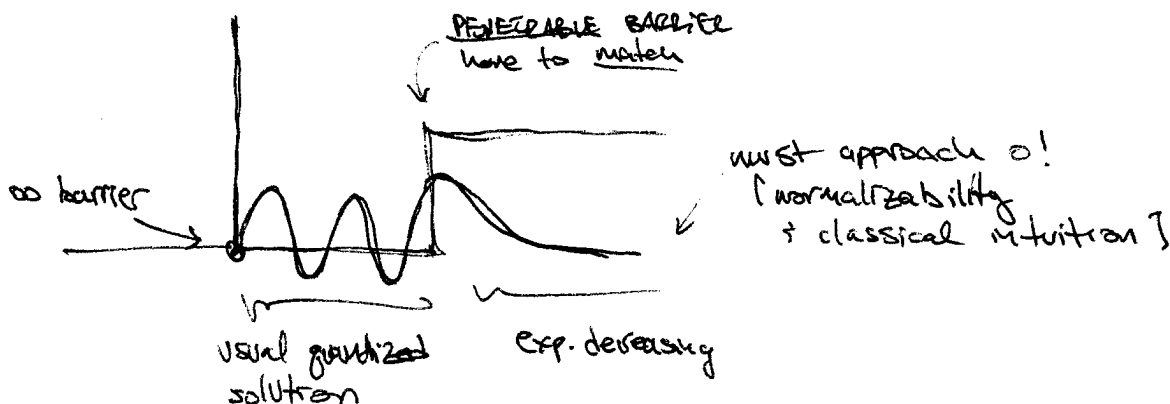 PENETRABLE BARRIER
have to match
∞ barrier
must approach 0!
[normalizability
& classical intuition]
usual quantized
solution
exp. decreasing